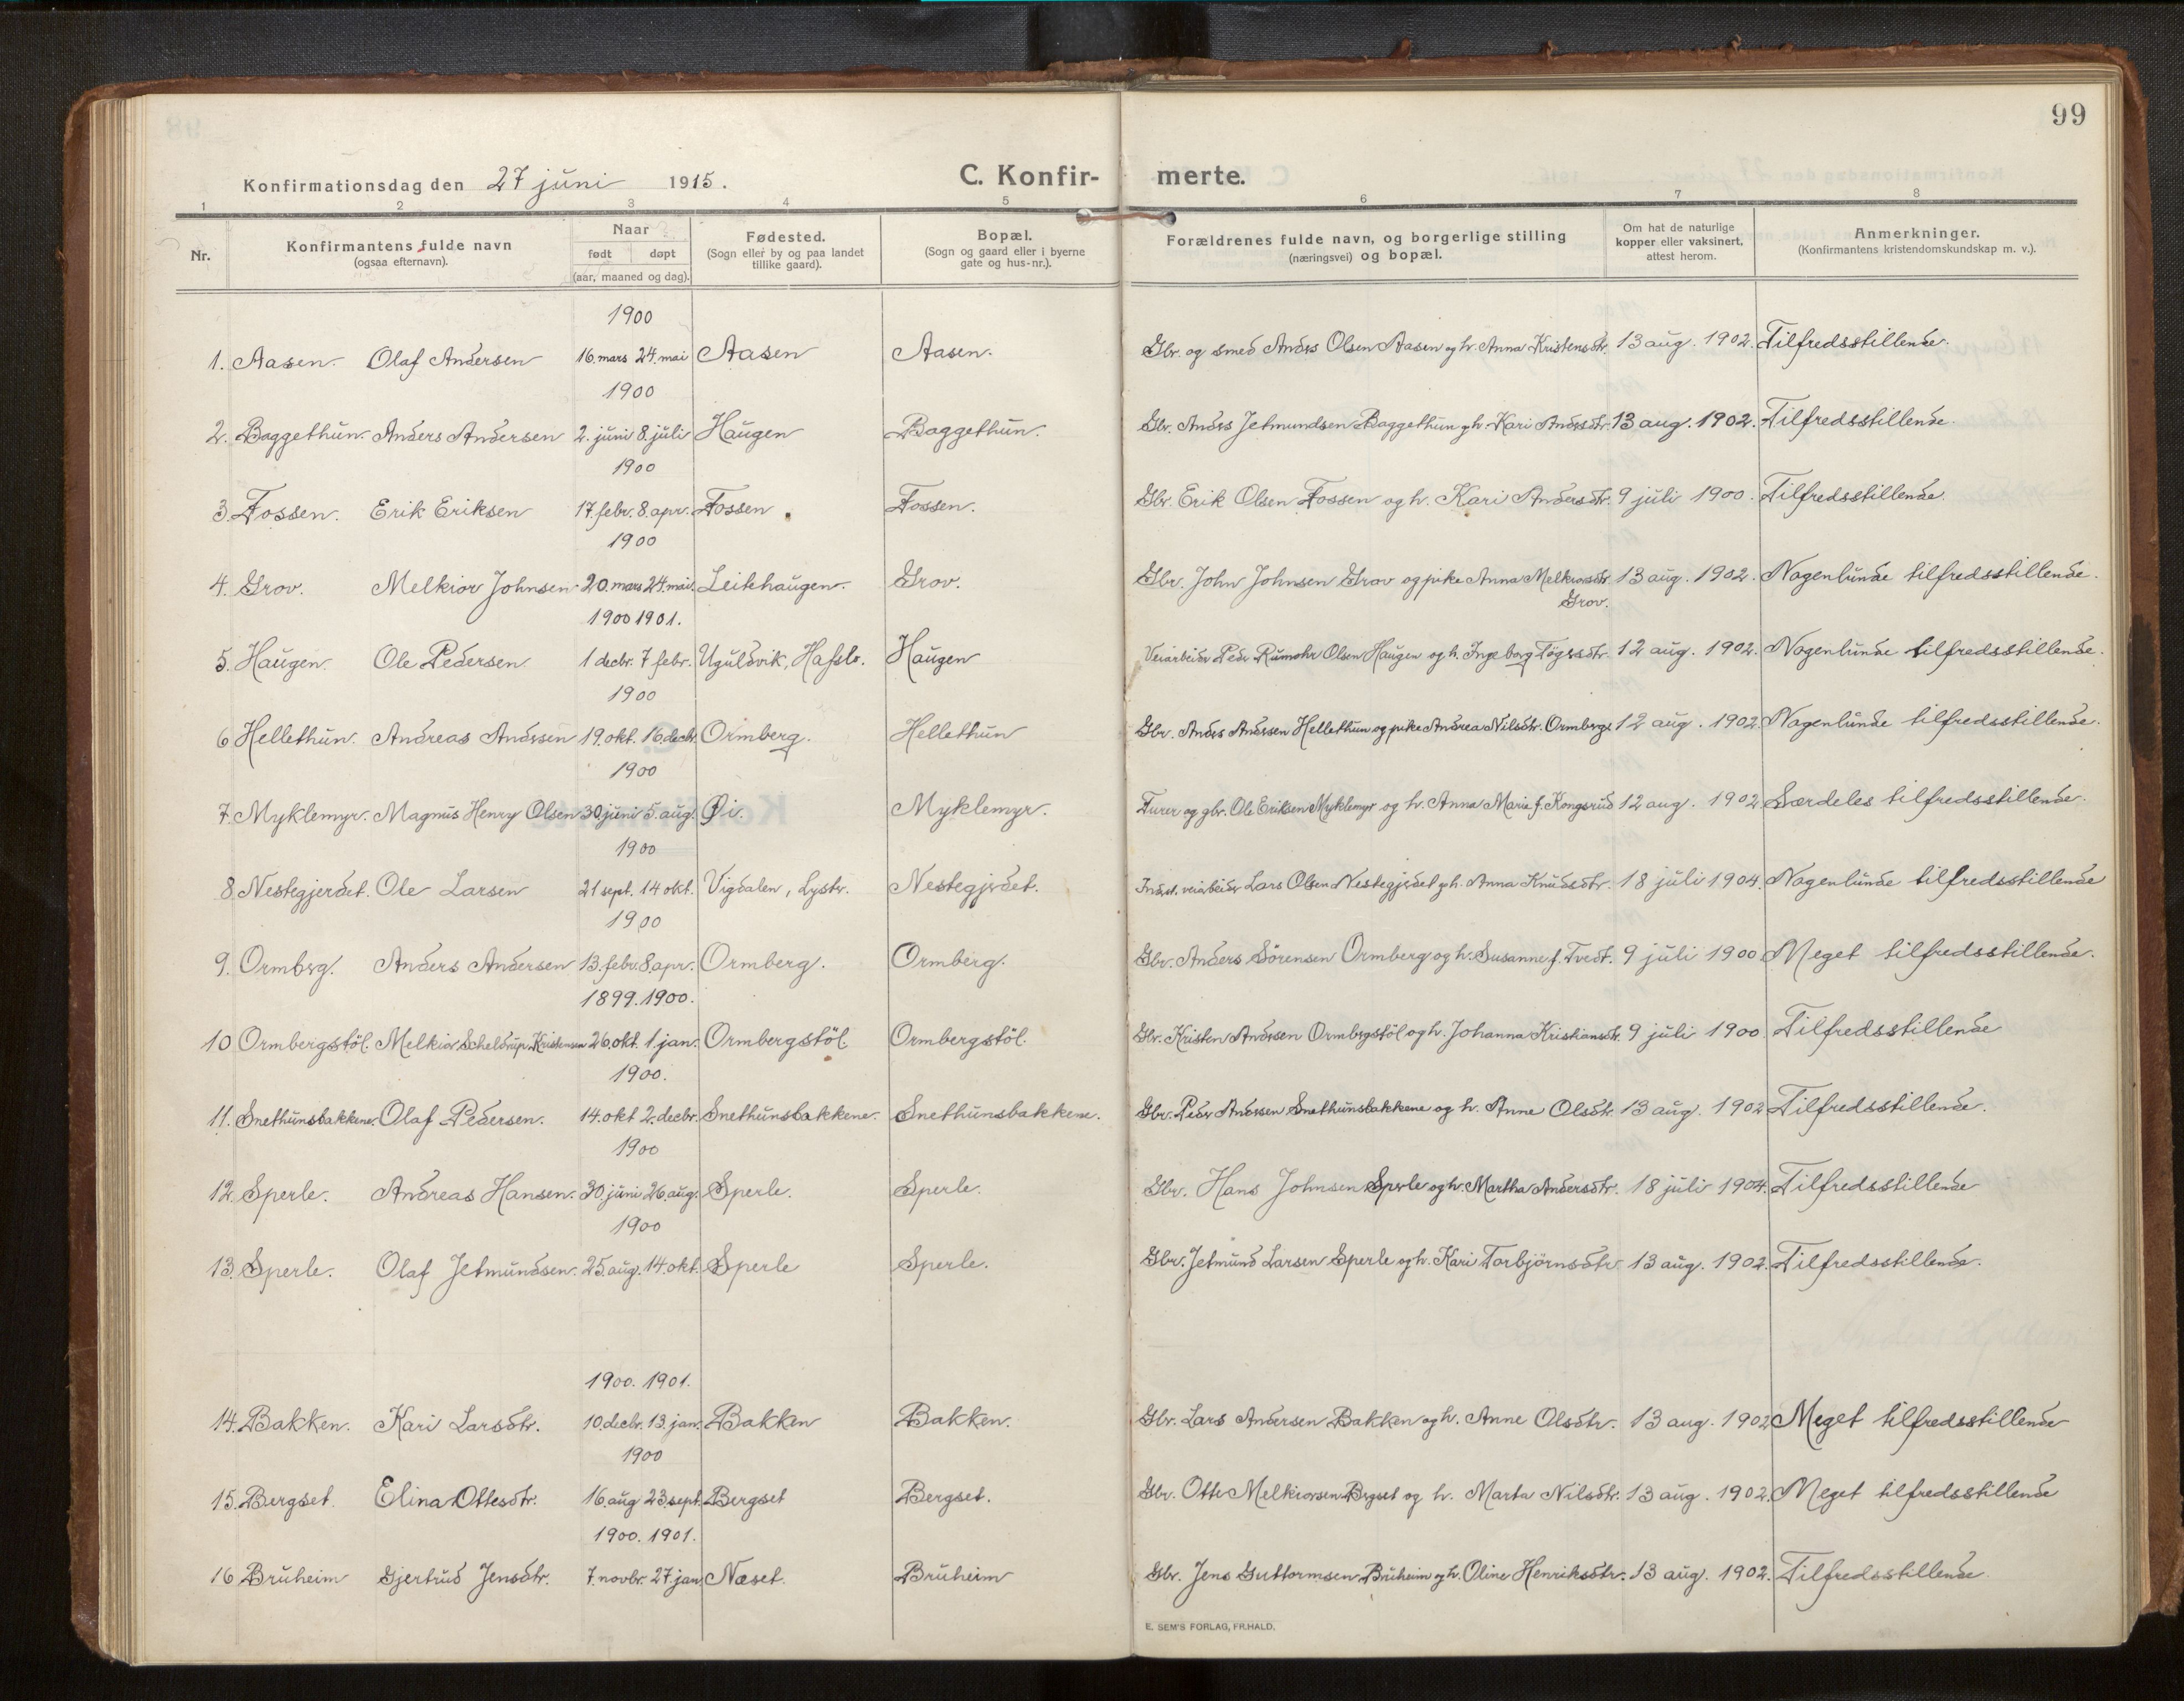 99
Konfirmationsdag den 27 juni 1915.
C. Konfir- merte.
1 2 3 4 5 6 7 8
Nr.
Konfirmantens fulde navn
(ogsaa efternavn).
Naar
født døpt
(aar, maaned og dag).
Fødested.
(Sogn eller by og paa landet
tillike gaard).
Bopæl.
(Sogn og gaard eller i byerne
gate og hus-nr.).
Forældrenes fulde navn, og borgerlige stilling
(næringsvei) og bopæl.
Om hat de naturlige
kopper eller vaksinert,
attest herom.
Anmerkninger.
(Konfirmantens kristendomskundskap m. v.).
1900
1. Aasen. Olaf Andersen 16. mars 24. mai Aasen Aasen. Gbr. og smed Anders Olsen Aasen og h. Anna Kristensdtr. 13 aug. 1902. Tilfredsstillende.
1900
2. Baggethun. Anders Andersen 2. juni 8. juli Haugen Baggethun. Gbr. Anders Jetmundsen Baggethun og h. Kari Andersdtr. 13 aug. 1902. Tilfredsstillende.
1900
3. Fossen. Erik Eriksen 17. febr. 8. apr. Fossen Fossen. Gbr. Erik Olsen Fossen og h. Kari Andersdtr. 9 juli 1900. Tilfredsstillende.
1900
4. Grov. Melkior Johnsen 20. mars 24. mai. Leitehaugen. Grov. Gbr. John Johnsen Grov og pike Anna Melkiorsdtr. 13 aug. 1902. Nogenlunde tilfredsstillende.
Grov.
1900 1901.
5. Haugen. Ole Pedersen 1 decbr. 7 febr. Uguldvik, Hafslo. Haugen Veiarbeider Peder Rumohr Olsen Haugen og h. Ingeborg Tøgersdtr. 12 aug. 1902. Nogenlunde tilfredsstillende.
1900
6 Hellethun. Andreas Andersen 19. okt. 16. decbr. Ormberg. Hellethun Gbr. Anders Andersen Hellethun og pike Andrea Nilsdtr. Ormberg 12 aug. 1902. Nogenlunde tilfredsstillende.
1900
7. Myklemyr. Magnus Henry Olsen 30 juni 5. aug. Øi. Myklemyr. Furer og gbr. Ole Eriksen Myklemyr og h. Anna Marie f. Kongsrud 12 aug. 1902 Særdeles tilfredsstillende.
1900
8. Nestegjerdet. Ole Larsen 21 sept. 14 okt. Vigdalen, Lystr. Nestegjerdet. Inderst. veiarbeider Lars Olsen Nestegjerdet og h. Anna Knudsdtr. 18 juli 1904. Nogenlunde tilfredsstillende
1900
9. Ormberg. Anders Andersen 13. febr. 8. apr. Ormberg. Ormberg. Gbr. Anders Sörensen Ormberg og h. Susanne f. Tvedt. 9 juli 1900 Meget tilfredsstillende.
1899. 1900.
10 Ormbergstöl. Melkior Scheldrup Kristensen 26. okt. 1. jan. Ormbergstöl Ormbergstöl. Gbr. Kristen Andersen Ormbergstöl og h. Johanna Kristiansdtr. 9 juli 1900. Tilfredsstillende
1900.
11. Snethunsbakkene. Olaf Pedersen. 14. okt 2. decbr. Snethunsbakkene. Snethunsbakkene. Gbr. Peder Andersen Snethunsbakkene og h. Anne Olsdtr. 13 aug. 1902 Tilfredsstillende.
1900
12. Sperle. Andreas Hansen. 30. juni 26. aug. Sperle. Sperle. Gbr. Hans Johnsen Sperle og h. Martha Andersdtr. 18 juli 1904. Tilfredsstillende
1900
13. Sperle. Olaf Jetmundsen. 25. aug. 14. okt. Sperle Sperle. Gbr. Jetmund Larsen Sperle og h. Kari Torbjörnsdtr 13 aug. 1902. Tilfredsstillende.
1900. 1901.
14. Bakken. Kari Larsdtr. 10. decbr. 13. jan. Bakken Bakken. Gbr. Lars Andersen Bakken og h. Anne Olsdtr. 13 aug. 1902 Meget tilfredsstillende
1900
15. Bergset. Elina Ottesdtr. 16. aug 23. sept. Bergset Bergset. Gbr. Otte Melkiorsen Bergset og h. Marta Nilsdtr. 13 aug. 1902. Meget tilfredsstillende
1900. 1901.
16 Bruheim Gjertrud Jensdtr. 7. novbr. 27. jan Næset. Bruheim Gbr. Jens Guttormsen Bruheim og h. Oline Henriksdtr. 13 aug. 1902. Tilfredsstillende.
E. SEM'S FORLAG, FR.HALD.